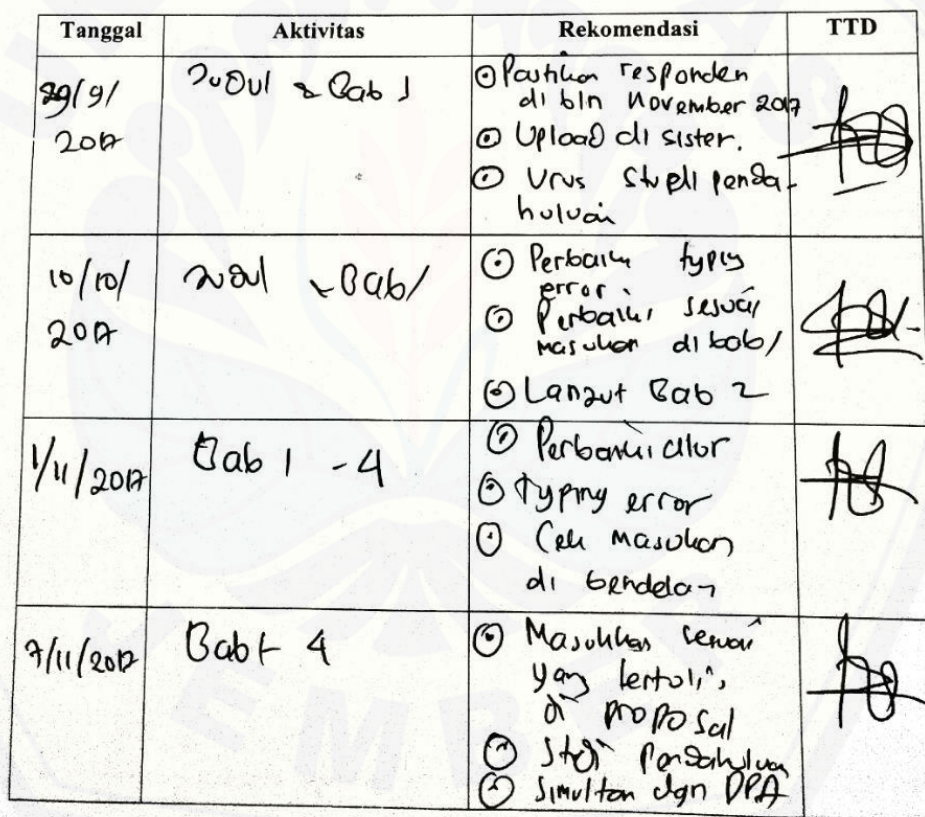 Tanggal Aktivitas Rekomendasi TTD
29/9/ Judul & Bab 1 Pastikan responden
2017 di bln November 2017
Upload di sister.
Urus Studi penda-
huluan
10/10/ Judul & Bab 1 Perbaiki typing
2017 error.
Perbaiki sesuai
masukan di bab 1
Lanjut Bab 2
1/11/2017 Bab 1 - 4 Perbaiki alur
Typing error
Cek Masukan
di bendelan
7/11/2017 Bab 1- 4 Masukkan sesuai
yang tertulis
di proposal
Studi Pendahuluan
Simultan dgn DPA
JEMBER